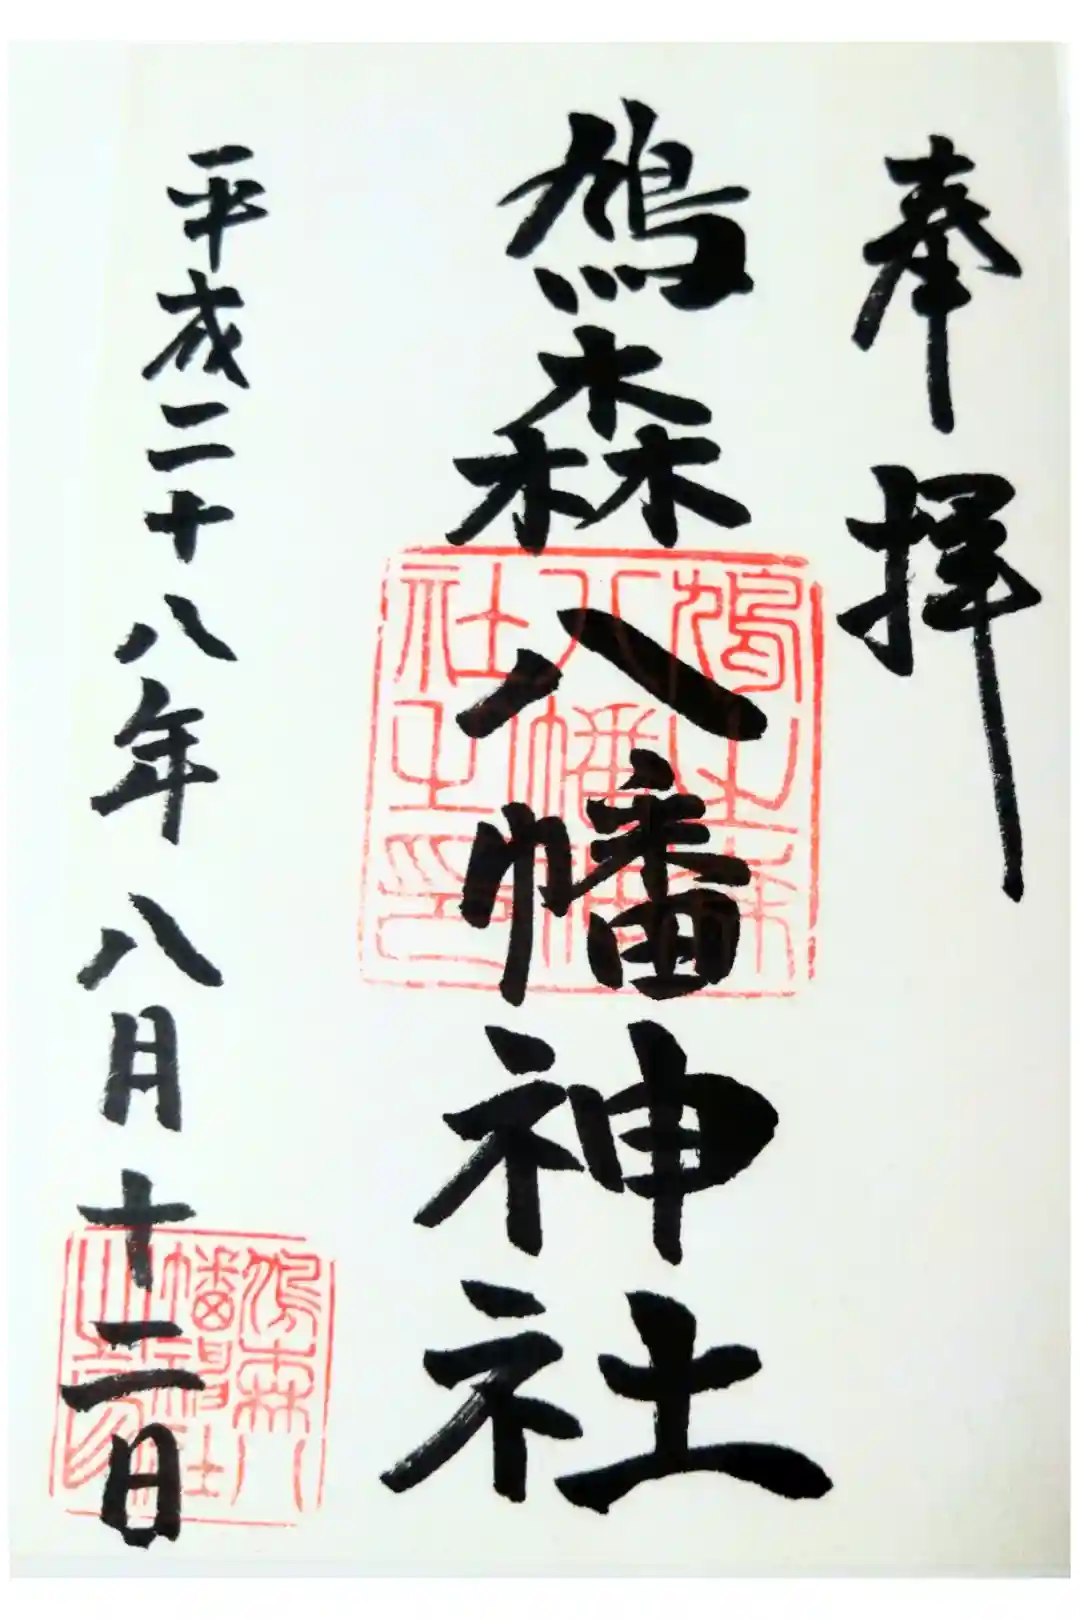 奉拝
鳩森八幡神社
平成二十八年八月十二日
鳩之森
八幡神
社之印
鳩森八
幡神社
之印